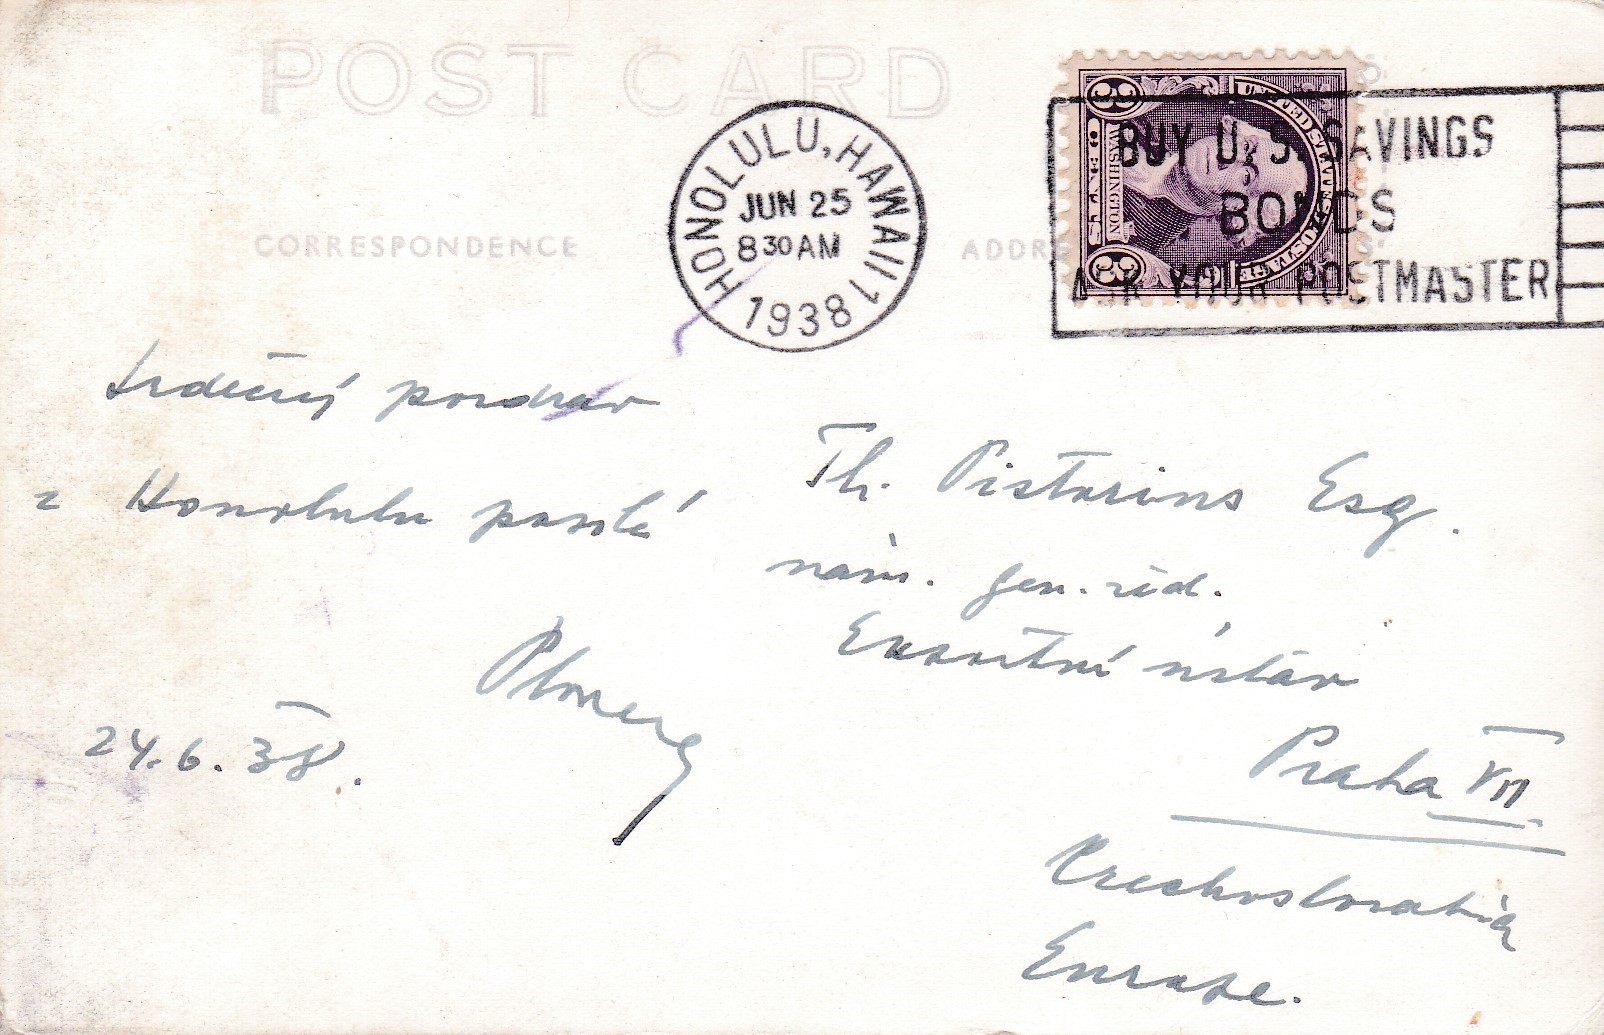 POST CARD
CORRESPONDENCE
HONOLULU, HAWAII 1
JUN 25
8 30 AM
1938
UNITED STATES POSTAGE
WASHINGTON
3 CENTS 3
BUY U. S. SAVINGS
BONDS
ASK YOUR POSTMASTER
Srdečný pozdrav
z Honolulu posílá
24.6.38.
Th. Pistorius Esq.
nám. gen. řed.
Exportní ústav
Praha VII
Czechoslovakia
Europe.